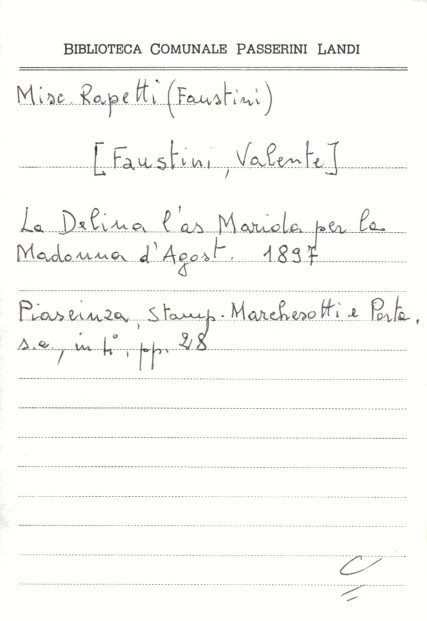 BIBLIOTECA COMUNALE PASSERINI LANDI
Misc. Rapetti (Faustini)
[Faustini, Valente]
La Delina l'as Marida per la
Madonna d'Agost. 1897
Piaseinza, Stamp. Marchesotti e Porta,
s.a., in 4°, pp. 28
C